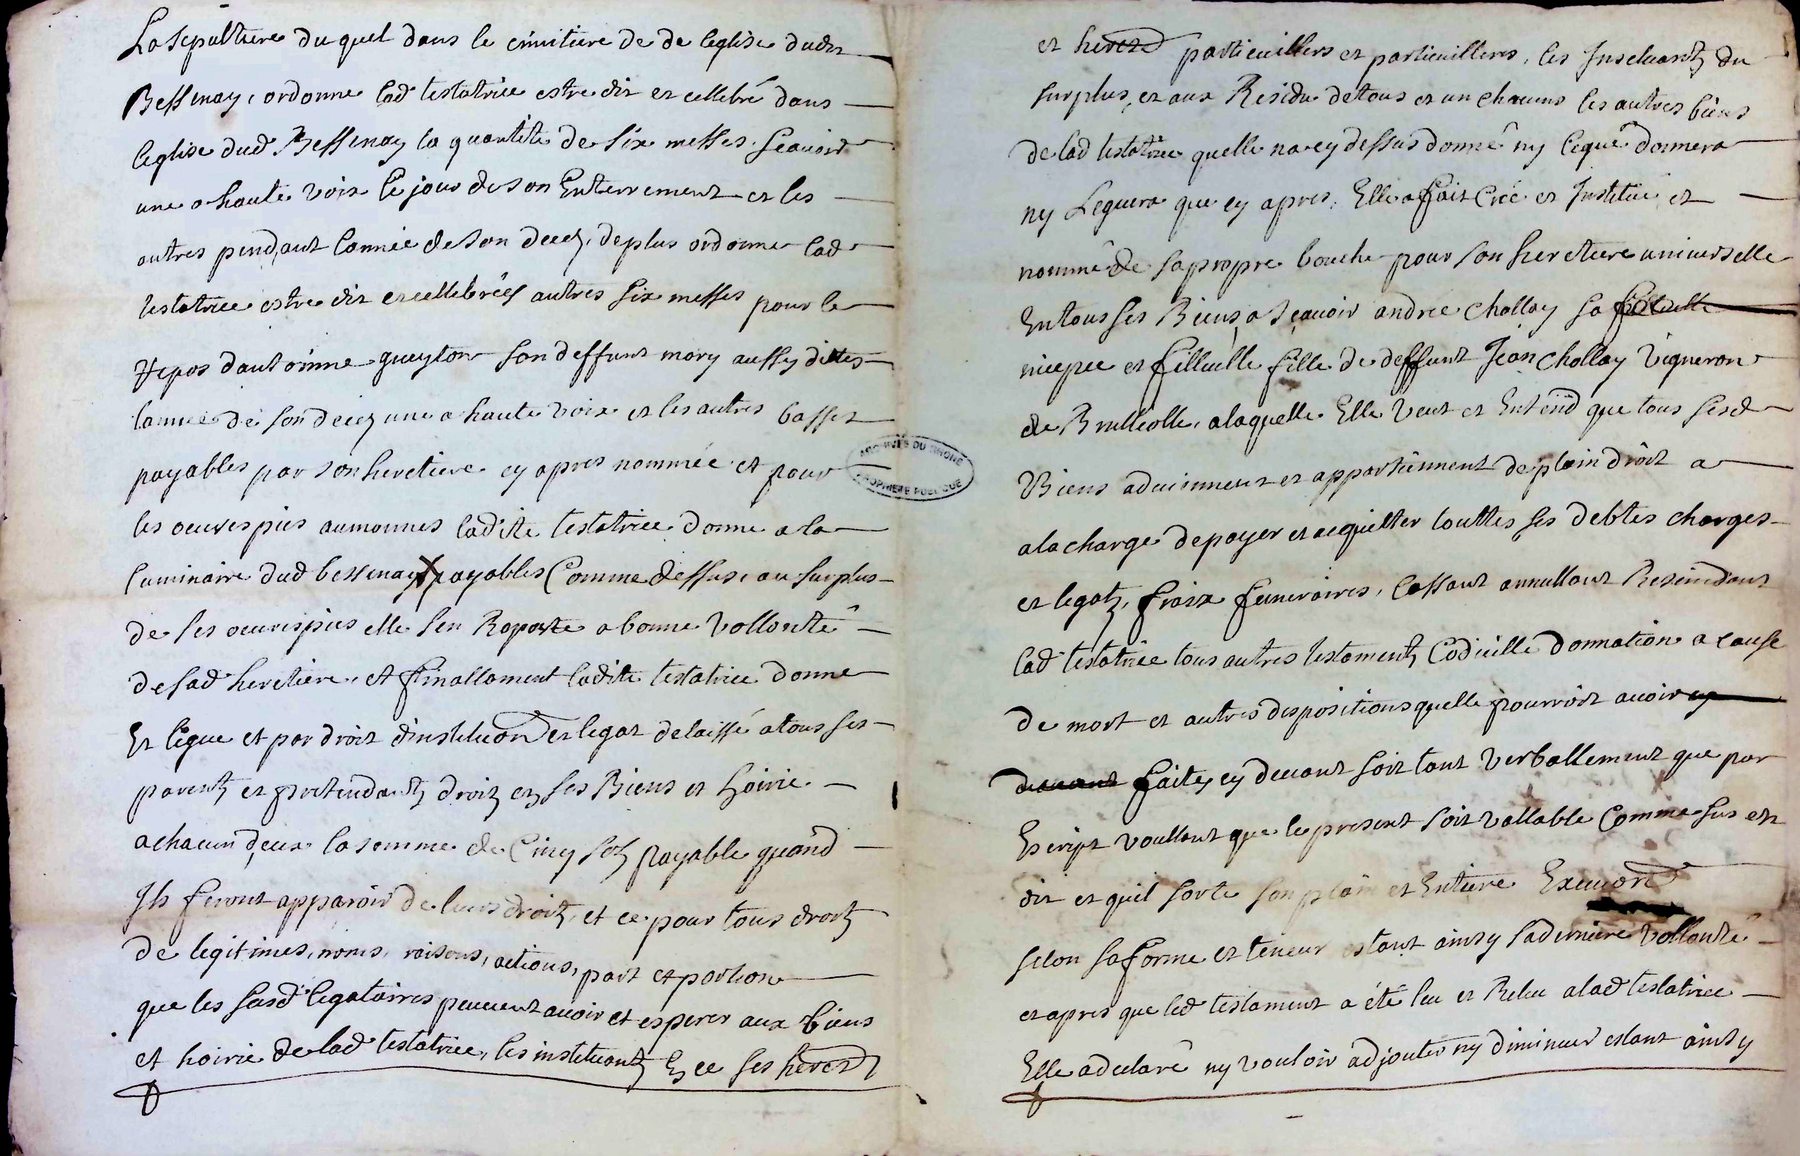 La sepulture du quel dans le cimitiere de de leglise dudt
Bessenay, ordonne lad testatrice estre dit et cellebré dans
leglise dud Bessenay la quantité de six messes scavoir
une a haute voix le jour de son Enterrement et les
autres pendant lannée de son deces, de plus ordonne lad
testatrice estre dit et cellebréés autres six messes pour le
repos dantoinne gueyton son deffunt mary aussy dittes
lannee de son deces une a haute voix et les autres basses
payables par son heretiere cy apres nommée et pour
les oeuvres pies aumonnes ladite testatrice donne a la
Luminaire dud bessenay payables Comme dessus, au surplus
de ses oeuvres pies elle sen Raporte a bonne vollonté
de sad heretiere, et finallament ladite testatrice donne
Et legue et par droit dinstitution et legat delaissé a tous ses
parents et pretendants droits en ses Biens et hoirie
a chacun deux la somme de Cinq sols payable quand
Ils feront apparoir de leurs droits, et ce pour tous droits
de legitimes, noms, raisons, actions, part et portion
que les susd legataires peuvent avoir et esperer aux biens
et hoirie de lad testatrice, les instituants En ce ses hered
ARCHIVES DU RHONE
PROPRIETE PUBLIQUE
et hered particuillers et particuilleres, les Inscluants du
surplus, et aux Residu de tous et un chacuns les autres biens
de lad testatrice quelle na cy dessus donné ny legué donnera
ny Leguera que cy apres, Elle a fait Créé et Institué et
nommé de sa propre bouche pour son heretiere universelle
En tous ses Biens a scavoir andree Chollay sa filleulle
niepce et filleulle fille de deffunt Jean Chollay Vigneron
de Brullolle, a laquelle Elle veut et Entend que tous sesd
Biens adviennent et appartiennent de plain droit a
a la charge de payer et acquitter touttes ses debtes charges
et legats, fraix funeraires, Cassant annullant Rescindant
lad testatrice tous autres testaments Codicille donnation a cause
de mort et autres dispositions quelle pourroit avoir cy
devant faites cy devant soit tant verballement que par
Escript voullant que le present soit vallable Comme sus est
dit et quil sorte son plain et Entiere Execution
selon sa forme et teneur estant ainsy sa derniere vollonté
et apres que led testament a été leu et Releu a lad testatrice
Elle a declaré ny vouloir adjouter ny diminuer estant ainsy